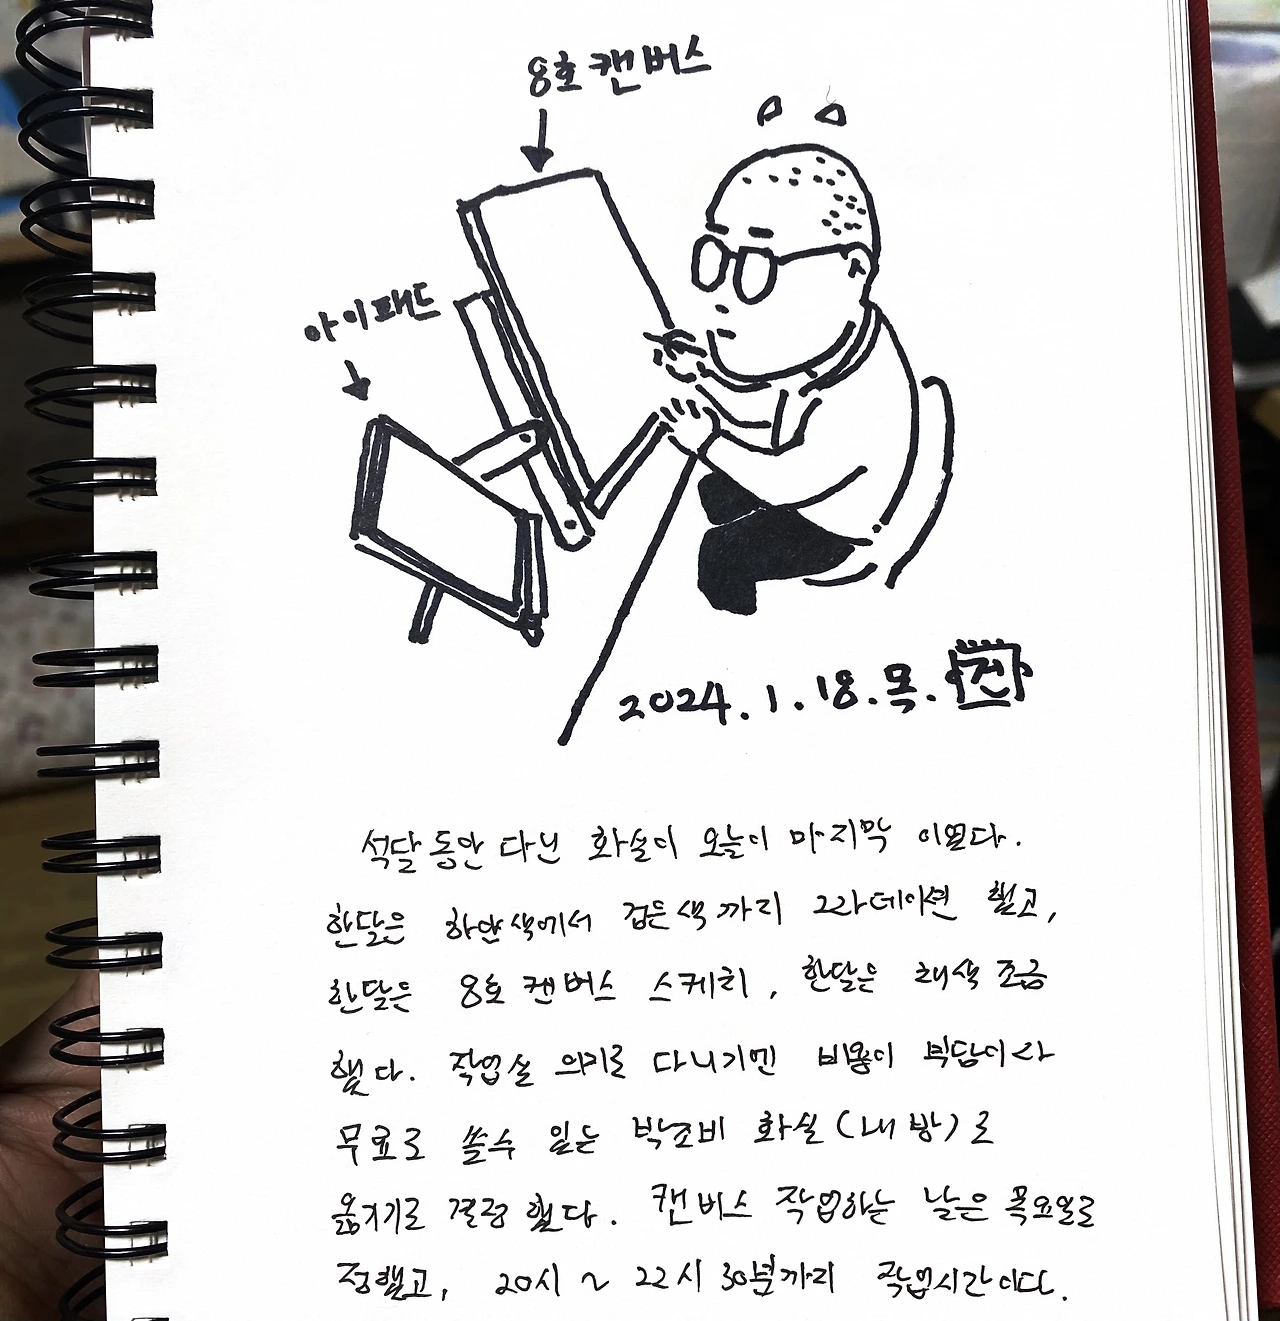 8호 캔버스
아이패드
2024.1.18.목. 전
석달 동안 다닌 화실이 오늘이 마지막 이였다.
한달은 하얀색에서 검은색까지 그라데이션 했고,
한달은 8호 캔버스 스케치, 한달은 채색 조금
했다. 작업실 의미로 다니기엔 비용이 부담이라
무료로 쓸수 있는 박조비 화실(내 방)로
옮기기로 결정 했다. 캔버스 작업하는 날은 목요일로
정했고, 20시 ~ 22시 30분까지 작업시간이다.